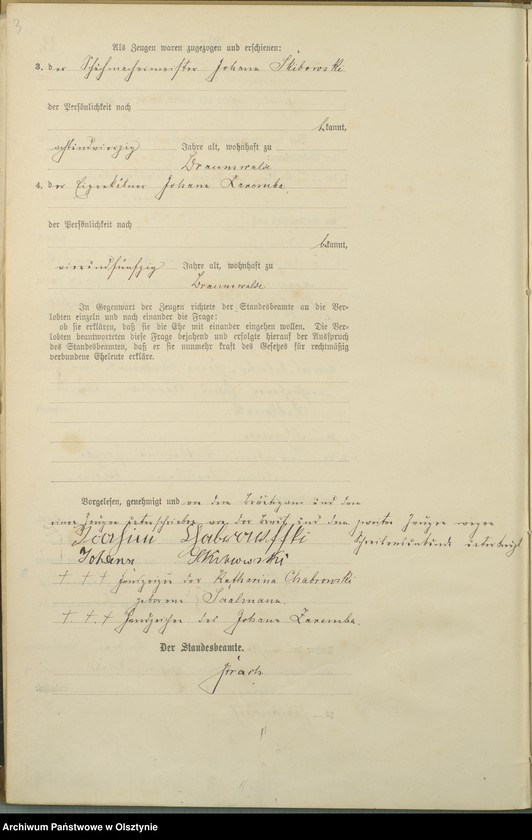 3
Als Zeugen waren zugezogen und erschienen:
3. der Schuhmachermeister Johann Skibowski
der Persönlichkeit nach
bekannt,
achtundvierzig Jahre alt, wohnhaft zu
Braunswalde
4. der Eigenkätner Johann Zaremba
der Persönlichkeit nach
bekannt,
vierundfünfzig Jahre alt, wohnhaft zu
Braunswalde
In Gegenwart der Zeugen richtete der Standesbeamte an die Ver-
lobten einzeln und nach einander die Frage:
ob sie erklären, daß sie die Ehe mit einander eingehen wollen. Die Ver-
lobten beantworteten diese Frage bejahend und erfolgte hierauf der Ausspruch
des Standesbeamten, daß er sie nunmehr kraft des Gesetzes für rechtmäßig
verbundene Eheleute erkläre.
Vorgelesen, genehmigt und von dem Bräutigam und dem
einen Zeugen unterschrieben von der Braut und dem zweiten Zeugen wegen
Schreibensunkunde unterkreuzt
Joachim
Johann Skibowski
+ + + Handzeichen der Katharina Chabrowski
geborene Saalmann.
+ + + Handzeichen des Johann Zaremba.
Der Standesbeamte.
Archiwum Państwowe w Olsztynie